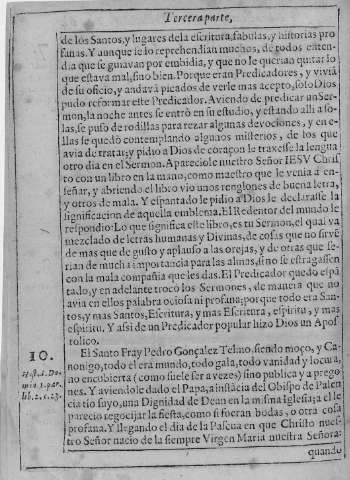 Tercera parte,
de los Santos, y lugares dela escritura, fabulas, y historias pro
fanas. Y aunque se lo reprehendian muchos, de todos enten-
dia que se guiavan por embidia, y que no le querian quitar lo
que estava mal, sino bien. Porque eran Predicadores, y vivia
de su oficio, y andavã picados de verle mas acepto, solo Dios
pudo reformar este Predicador. Aviendo de predicar un Ser-
mon, la noche antes se entrò en su estudio, y estando alli a so-
las, se puso de rodillas para rezar algunas devociones, y en e-
llas se quedò contemplando algunos misterios, de los que
avia de tratar, y pidio a Dios de coraçon le traxesse la lengua
otro dia en el Sermon. Apareciole nuestro Señor IESV Chris
to con un libro en la mano, como maestro que le venia â en-
señar, y abriendo el libro vio unos renglones de buena letra,
y otros de mala. Y espantado le pidio a Dios le declarasse la
significacion de aquella emblema. El Redentor del mundo le
respondio: Lo que significa este libro, es tu Sermon, el qual va
mezclado de letras humanas y Divinas, de cosas que no sirvẽ
de mas que de gusto y aplauso a las orejas, y de otras que se-
rian de mucha importancia para las almas, si no se estragassen
con la mala compañia que les das. El Predicador quedò espã
tado, y en adelante trocò los Sermones, de manera que no
avia en ellos palabra ociosa ni profana; porque todo era San-
tos, y mas Santos, Escritura, y mas Escritura, espiritu, y mas
espiritu. Y assi de un Predicador popular hizo Dios un Apos
tolico.
10.
Hist. S. Do-
min. 3. par.
lib. 2. c. 23.
El Santo Fray Pedro Gonçalez Telmo, siendo moço, y Ca-
nonigo, todo el era mundo, todo gala, todo vanidad y locura,
no encubierta (como suele ser a vezes) sino publica y a prego-
nes. Y aviendole dado el Papa, a instãcia del Obispo de Palen
cia tio suyo, una Dignidad de Dean en la misma Iglesia; a el le
parecio regozijar la fiesta, como si fueran bodas, o otra cosa
profana. Y llegando el dia de la Pascua en que Christo nues-
tro Señor nacio de la siempre Virgen Maria nuestra Señora:
quando